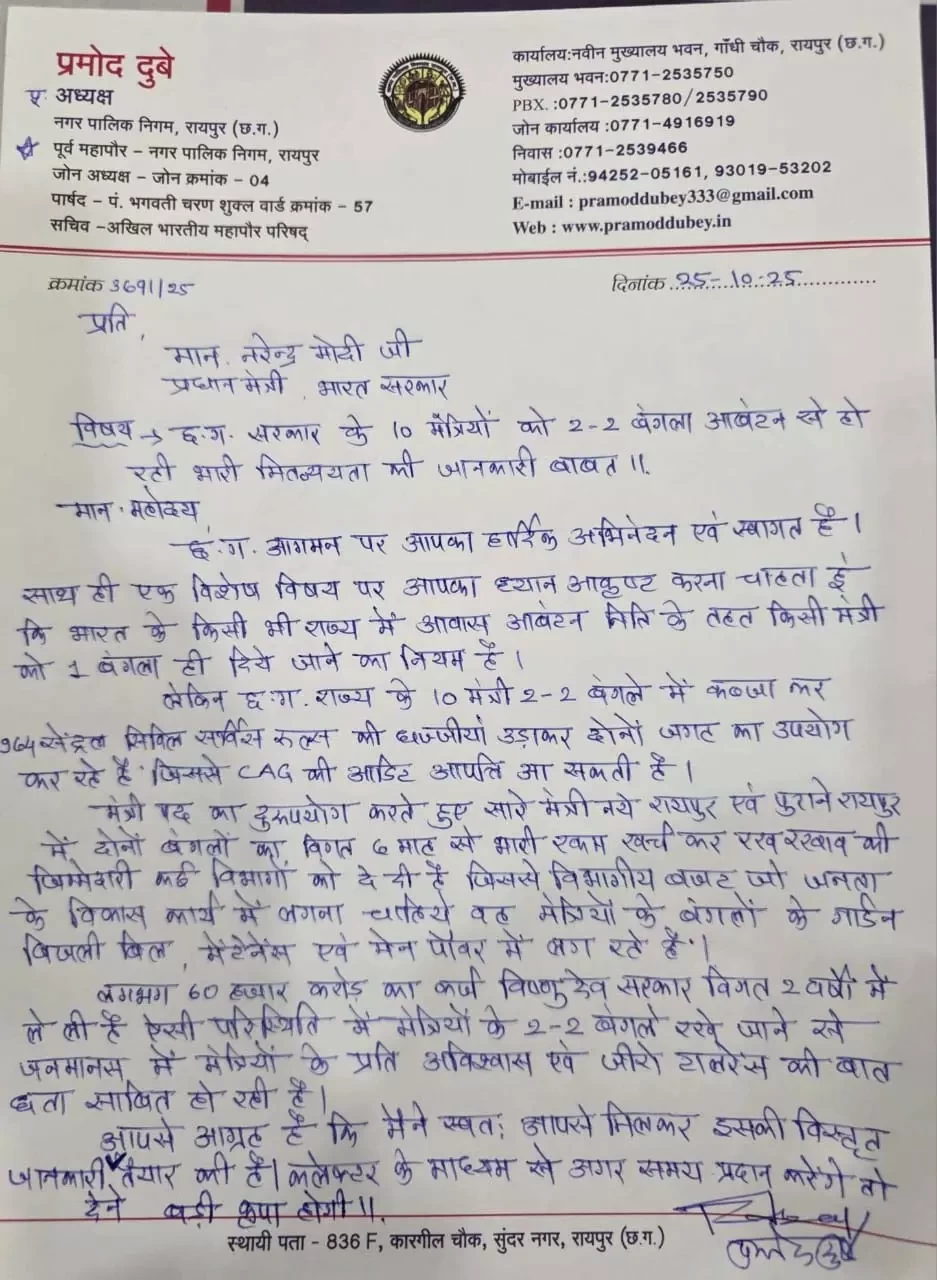 प्रमोद दुबे
पू. अध्यक्ष
नगर पालिक निगम, रायपुर (छ.ग.)
पूर्व महापौर – नगर पालिक निगम, रायपुर
जोन अध्यक्ष – जोन क्रमांक - 04
पार्षद – पं. भगवती चरण शुक्ल वार्ड क्रमांक – 57
सचिव –अखिल भारतीय महापौर परिषद्
कार्यालय:नवीन मुख्यालय भवन, गाँधी चौक, रायपुर (छ.ग.)
मुख्यालय भवन:0771-2535750
PBX. :0771-2535780/2535790
जोन कार्यालय :0771-4916919
निवास :0771-2539466
मोबाईल नं.:94252-05161, 93019-53202
E-mail : pramoddubey333@gmail.com
Web : www.pramoddubey.in
क्रमांक 3691/25
दिनांक 25-10-25
प्रति,
मान. नरेन्द्र मोदी जी
प्रधान मंत्री, भारत सरकार
विषय → छ.ग. सरकार के 10 मंत्रियों को 2-2 बंगला आबंटन से हो
रही भारी मितव्ययता की जानकारी बाबत॥.
मान. महोदय
छ.ग. आगमन पर आपका हार्दिक अभिनंदन एवं स्वागत है।
साथ ही एक विशेष विषय पर आपका ध्यान आकृष्ट करना चाहता हूं
कि भारत के किसी भी राज्य में आवास आबंटन निति के तहत किसी मंत्री
को 1 बंगला ही दिये जाने का नियम है।
लेकिन छ.ग. राज्य के 10 मंत्री 2-2 बंगले में कब्जा कर
964 सेंट्रल सिविल सर्विस रूल्स की धज्जीयां उड़ाकर दोनों जगह का उपयोग
कर रहे है जिससे CAG की आडिट आपत्ति आ सकती है।
मंत्री पद का दुरूपयोग करते हुए सारे मंत्री नये रायपुर एवं पुराने रायपुर
में दोनों बंगलों का विगत 6 माह से भारी रकम खर्च कर रख रखाव की
जिम्मेदारी कई विभागों को दे दी है जिससे विभागीय बजट जो जनता
के विकास कार्य में लगना चाहिये वह मंत्रियों के बंगलों के गार्डन
बिजली बिल, मेंटेनेंस एवं मेन पॉवर में लग रहे है।
लगभग 60 हजार करोड़ का कर्ज विष्णु देव सरकार विगत 2 वर्षों में
ले ली है ऐसी परिस्थिति में मंत्रियों के 2-2 बंगले रखे जाने से
जनमानस में मंत्रियों के प्रति अविश्वास एवं जीरो टालरेंस की बात
धता साबित हो रही है।
आपसे आग्रह है कि मैंने स्वत: आपसे मिलकर इसकी विस्तृत
जानकारी देने तैयार की है। कलेक्टर के माध्यम से अगर समय प्रदान करेंगे तो
बड़ी कृपा होगी॥.
स्थायी पता - 836 F, कारगील चौक, सुंदर नगर, रायपुर (छ.ग.)